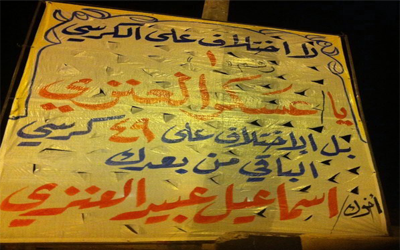 لا اختلاف على الكرسي
١
يا عسكر العنزي
بل الاختلاف على ٤٩ كرسي
الباقي من بعدك
أخوك/ اسماعيل عبيد العنزي